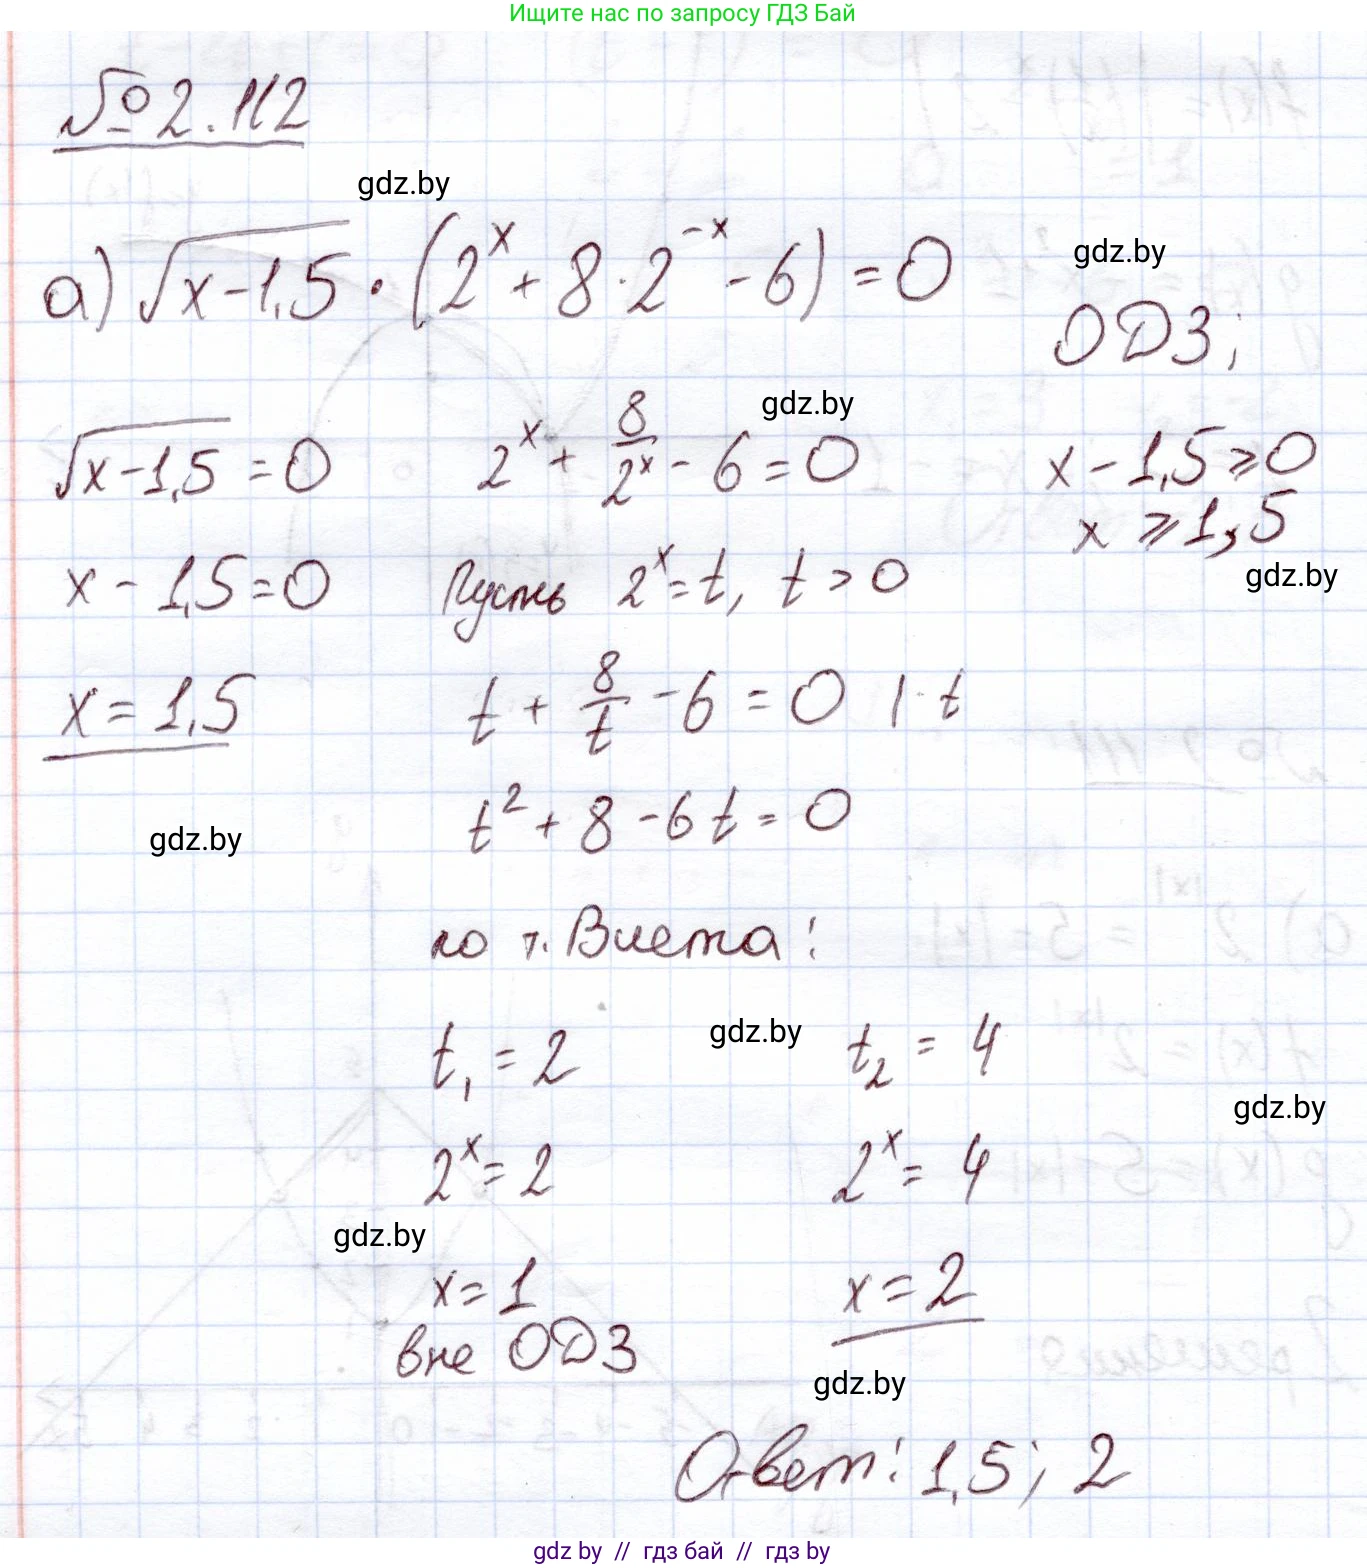 Ищите нас по запросу ГДЗ Бай
№ 2.112
gdz.by
а) √(x-1,5) · (2^x + 8·2^(-x) - 6) = 0
gdz.by
ОДЗ;
√(x-1,5) = 0 2^x + 8/2^x - 6 = 0 x - 1,5 ≥ 0
gdz.by
x ≥ 1,5
gdz.by
x - 1,5 = 0 Пусть 2^x = t, t > 0
x = 1,5 t + 8/t - 6 = 0 | · t
t² + 8 - 6t = 0
gdz.by
по т. Виета:
t₁ = 2 gdz.by t₂ = 4
gdz.by
2^x = 2 2^x = 4
gdz.by
x = 1 x = 2
вне ОДЗ
gdz.by
Ответ: 1,5; 2
gdz by // гдз бай // гдз by